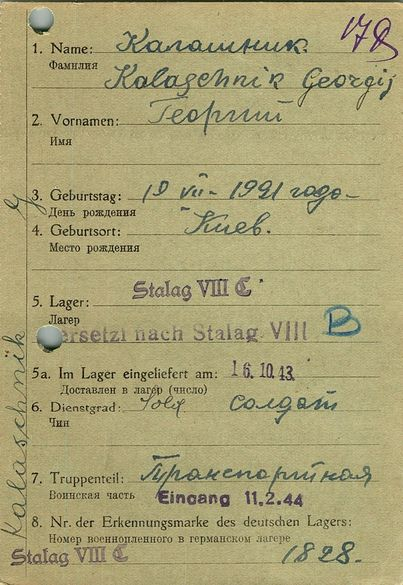 178
1. Name: Калашник
Фамилия
Kalaschnik Georgij
2. Vornamen: Георгий
Имя
3. Geburtstag: 19 VII - 1921 года -
День рождения
4. Geburtsort: Киев.
Место рождения
5. Lager: Stalag VIII C
Лагер
ersetzt nach Stalag VIII B
5a. Im Lager eingeliefert am: 16.10.43.
Доставлен в лагер (число)
6. Dienstgrad: Sold солдат
Чин
7. Truppenteil: Транспортная
Воинская часть Eingang 11.2.44
8. Nr. der Erkennungsmarke des deutschen Lagers:
Номер военнопленного в германском лагере
Stalag VIII C 1828.
Kalaschnik G